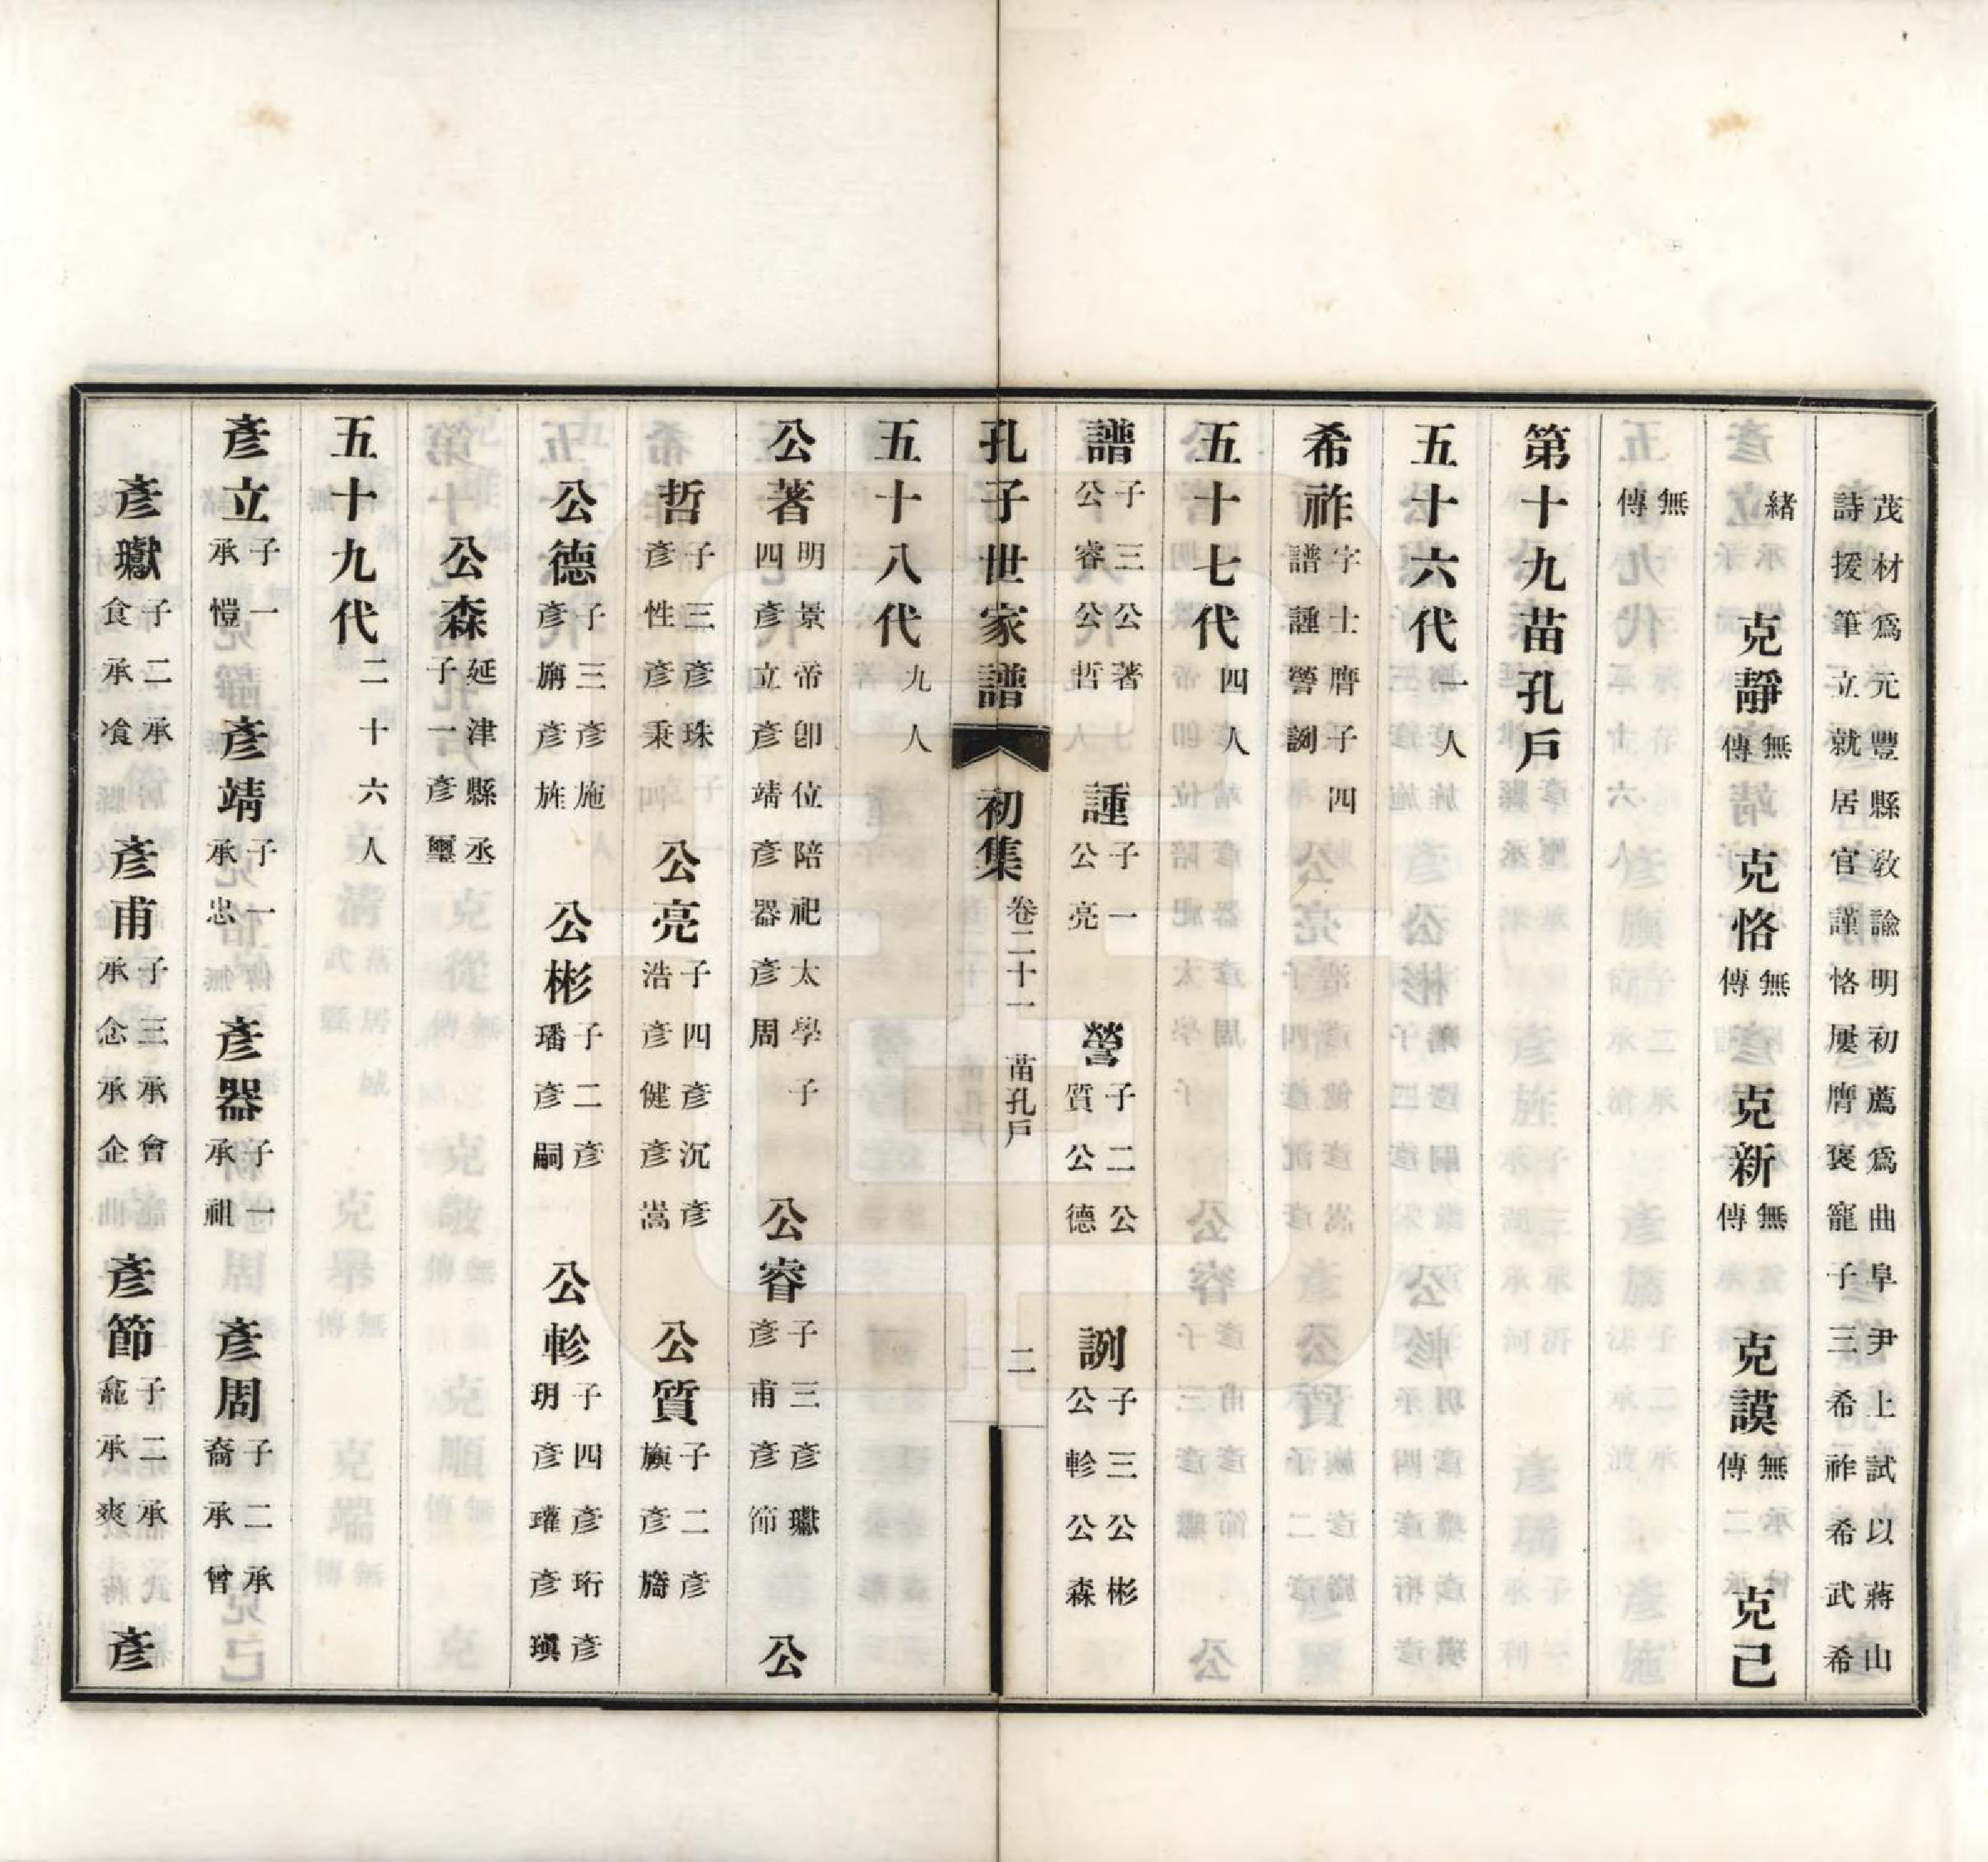 茂材爲元豐縣教諭明初薦爲曲阜尹上試以蔣山
詩援筆立就居官謹恪屢膺褒寵子三希祚希武希
緒 克靜無傳 克恪無傳 克新無傳 克謨無傳 克己
無傳
第十九苗孔戶
五十六代一人
希祚字士膺子四譜諥䇾詶
五十七代四人
譜子三公著公睿公哲 諥子一公亮 䇾子二公質公德 詶子三公彬公軫公森
孔子世家譜 初集 卷二十一 苗孔戶 二
五十八代九人
公著明景帝卽位陪祀太學子四彥立彥靖彥器彥周 公睿子三彥瓛彥甫彥節 公
哲子三彥珠彥性彥秉 公亮子四彥沉彥浩彥健彥嵩 公質子二彥旟彥旖
公德子三彥施彥旃彥旌 公彬子二彥璠彥嗣 公軫子四彥珩彥玥彥瓘彥瑱
公森延津縣丞子一彥璽
五十九代二十六人
彥立子一承愷 彥靖子一承忠 彥器子一承祖 彥周子二承裔承曾
彥瓛子二承食承飡 彥甫子三承會承念承企 彥節子二承龕承爽 彥